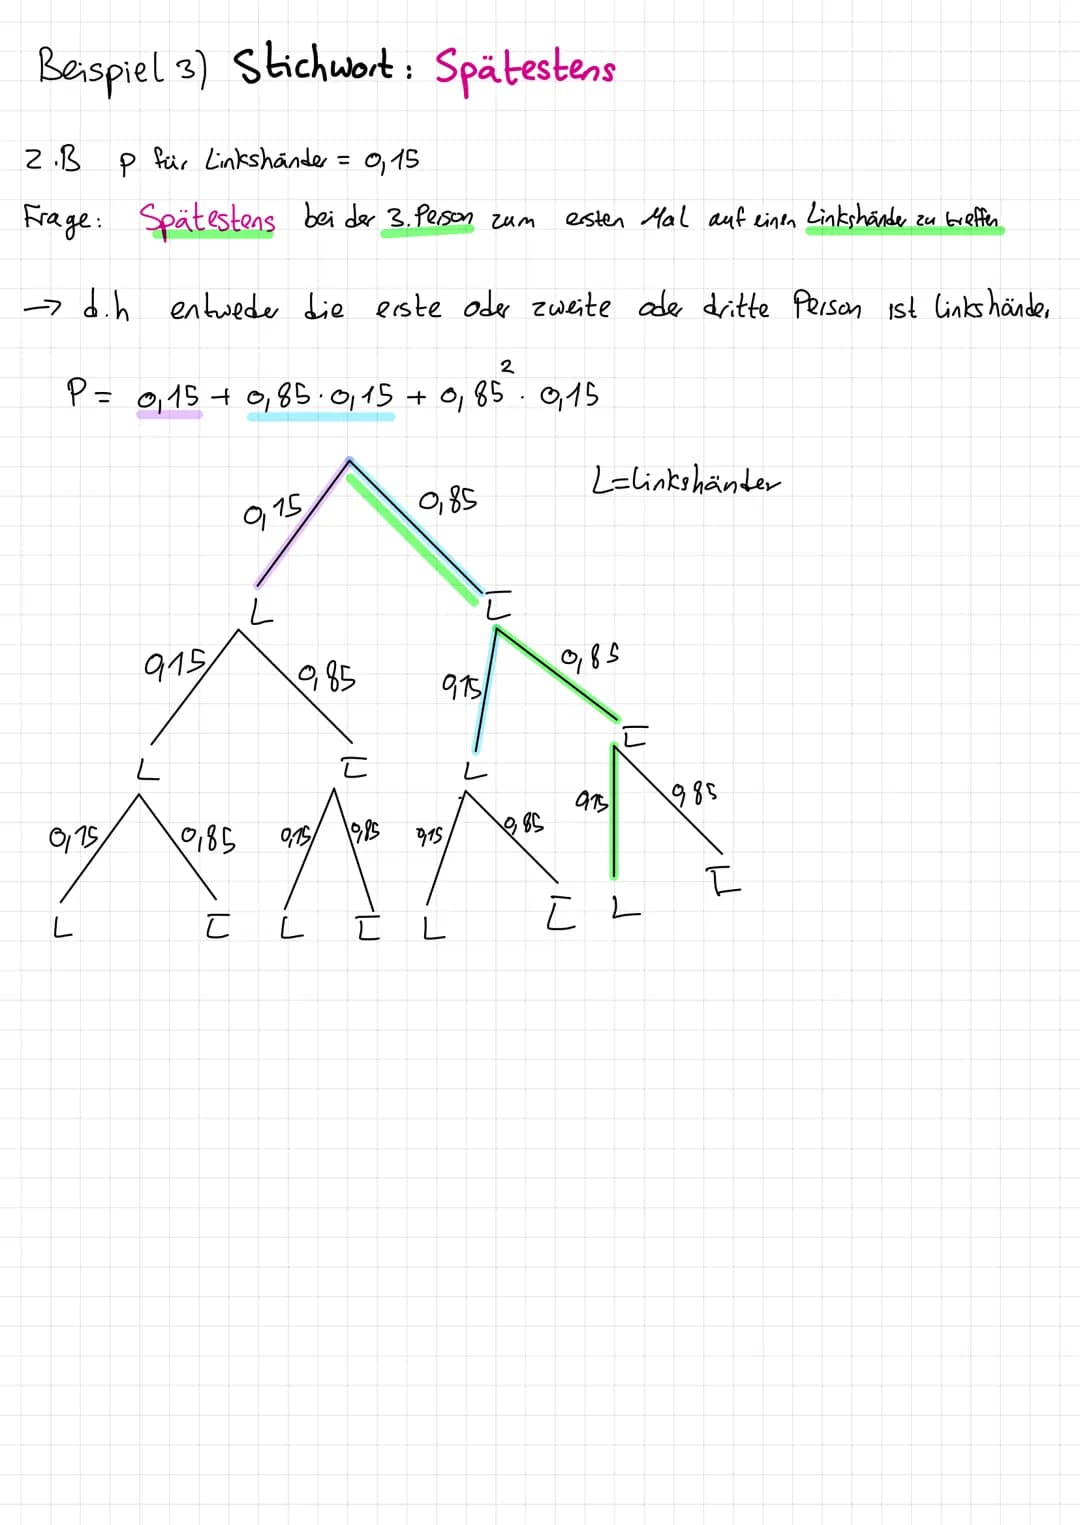 Beispiel 3) Stichwort: Spätestens
Z.B p für Linkshänder = 0,15
Frage: Spätestens bei der 3. Person zum ersten Mal auf einen Linkshänder zu treffen
→ d.h entweder die erste oder zweite oder dritte Person ist linkshänder
P = 0,15 + 0,85 · 0,15 + 0,85² · 0,15
L=linkshänder
0,15 0,85
L L̅
0,15 0,85 0,15 0,85
L L̅ L L̅
0,15 0,85 0,15 0,85 0,15 0,85 0,15 0,85
L L̅ L L̅ L L̅ L L̅